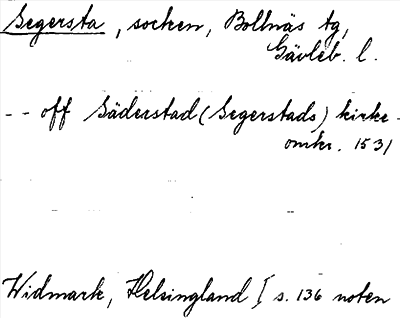 Segersta, socken, Bollnäs tg,
Gävleb. l.
-- off Säderstad (Segerstads) kirke-
omkr. 1531
Widmark, Helsingland I s. 136 noten